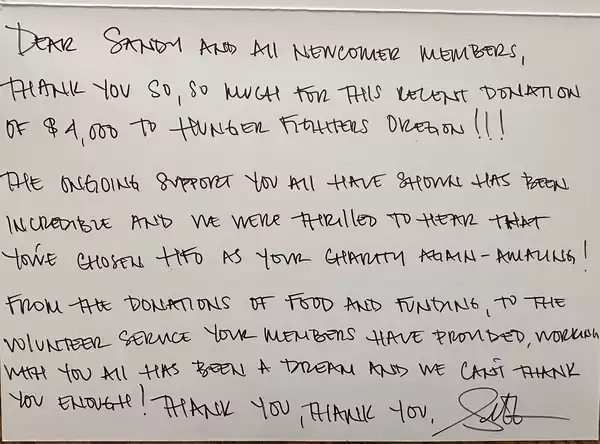 DEAR SANDY AND All NEWCOMER MEMBERS,
THANK YOU SO, SO MUCH FOR THIS RECENT DONATION
OF $4,000 TO HUNGER FIGHTERS OREGON!!!
THE ONGOING SUPPORT YOU All HAVE SHOWN HAS BEEN
INCREDIBLE AND WE WERE THRILLED TO HEAR THAT
YOU'VE CHOSEN HFO AS YOUR CHARITY AGAIN - AMAZING!
FROM THE DONATIONS OF FOOD AND FUNDING, TO THE
VOLUNTEER SERVICE YOUR MEMBERS HAVE PROVIDED, WORKING
WITH YOU All HAS BEEN A DREAM AND WE CAN'T THANK
YOU ENOUGH! THANK YOU, THANK YOU.